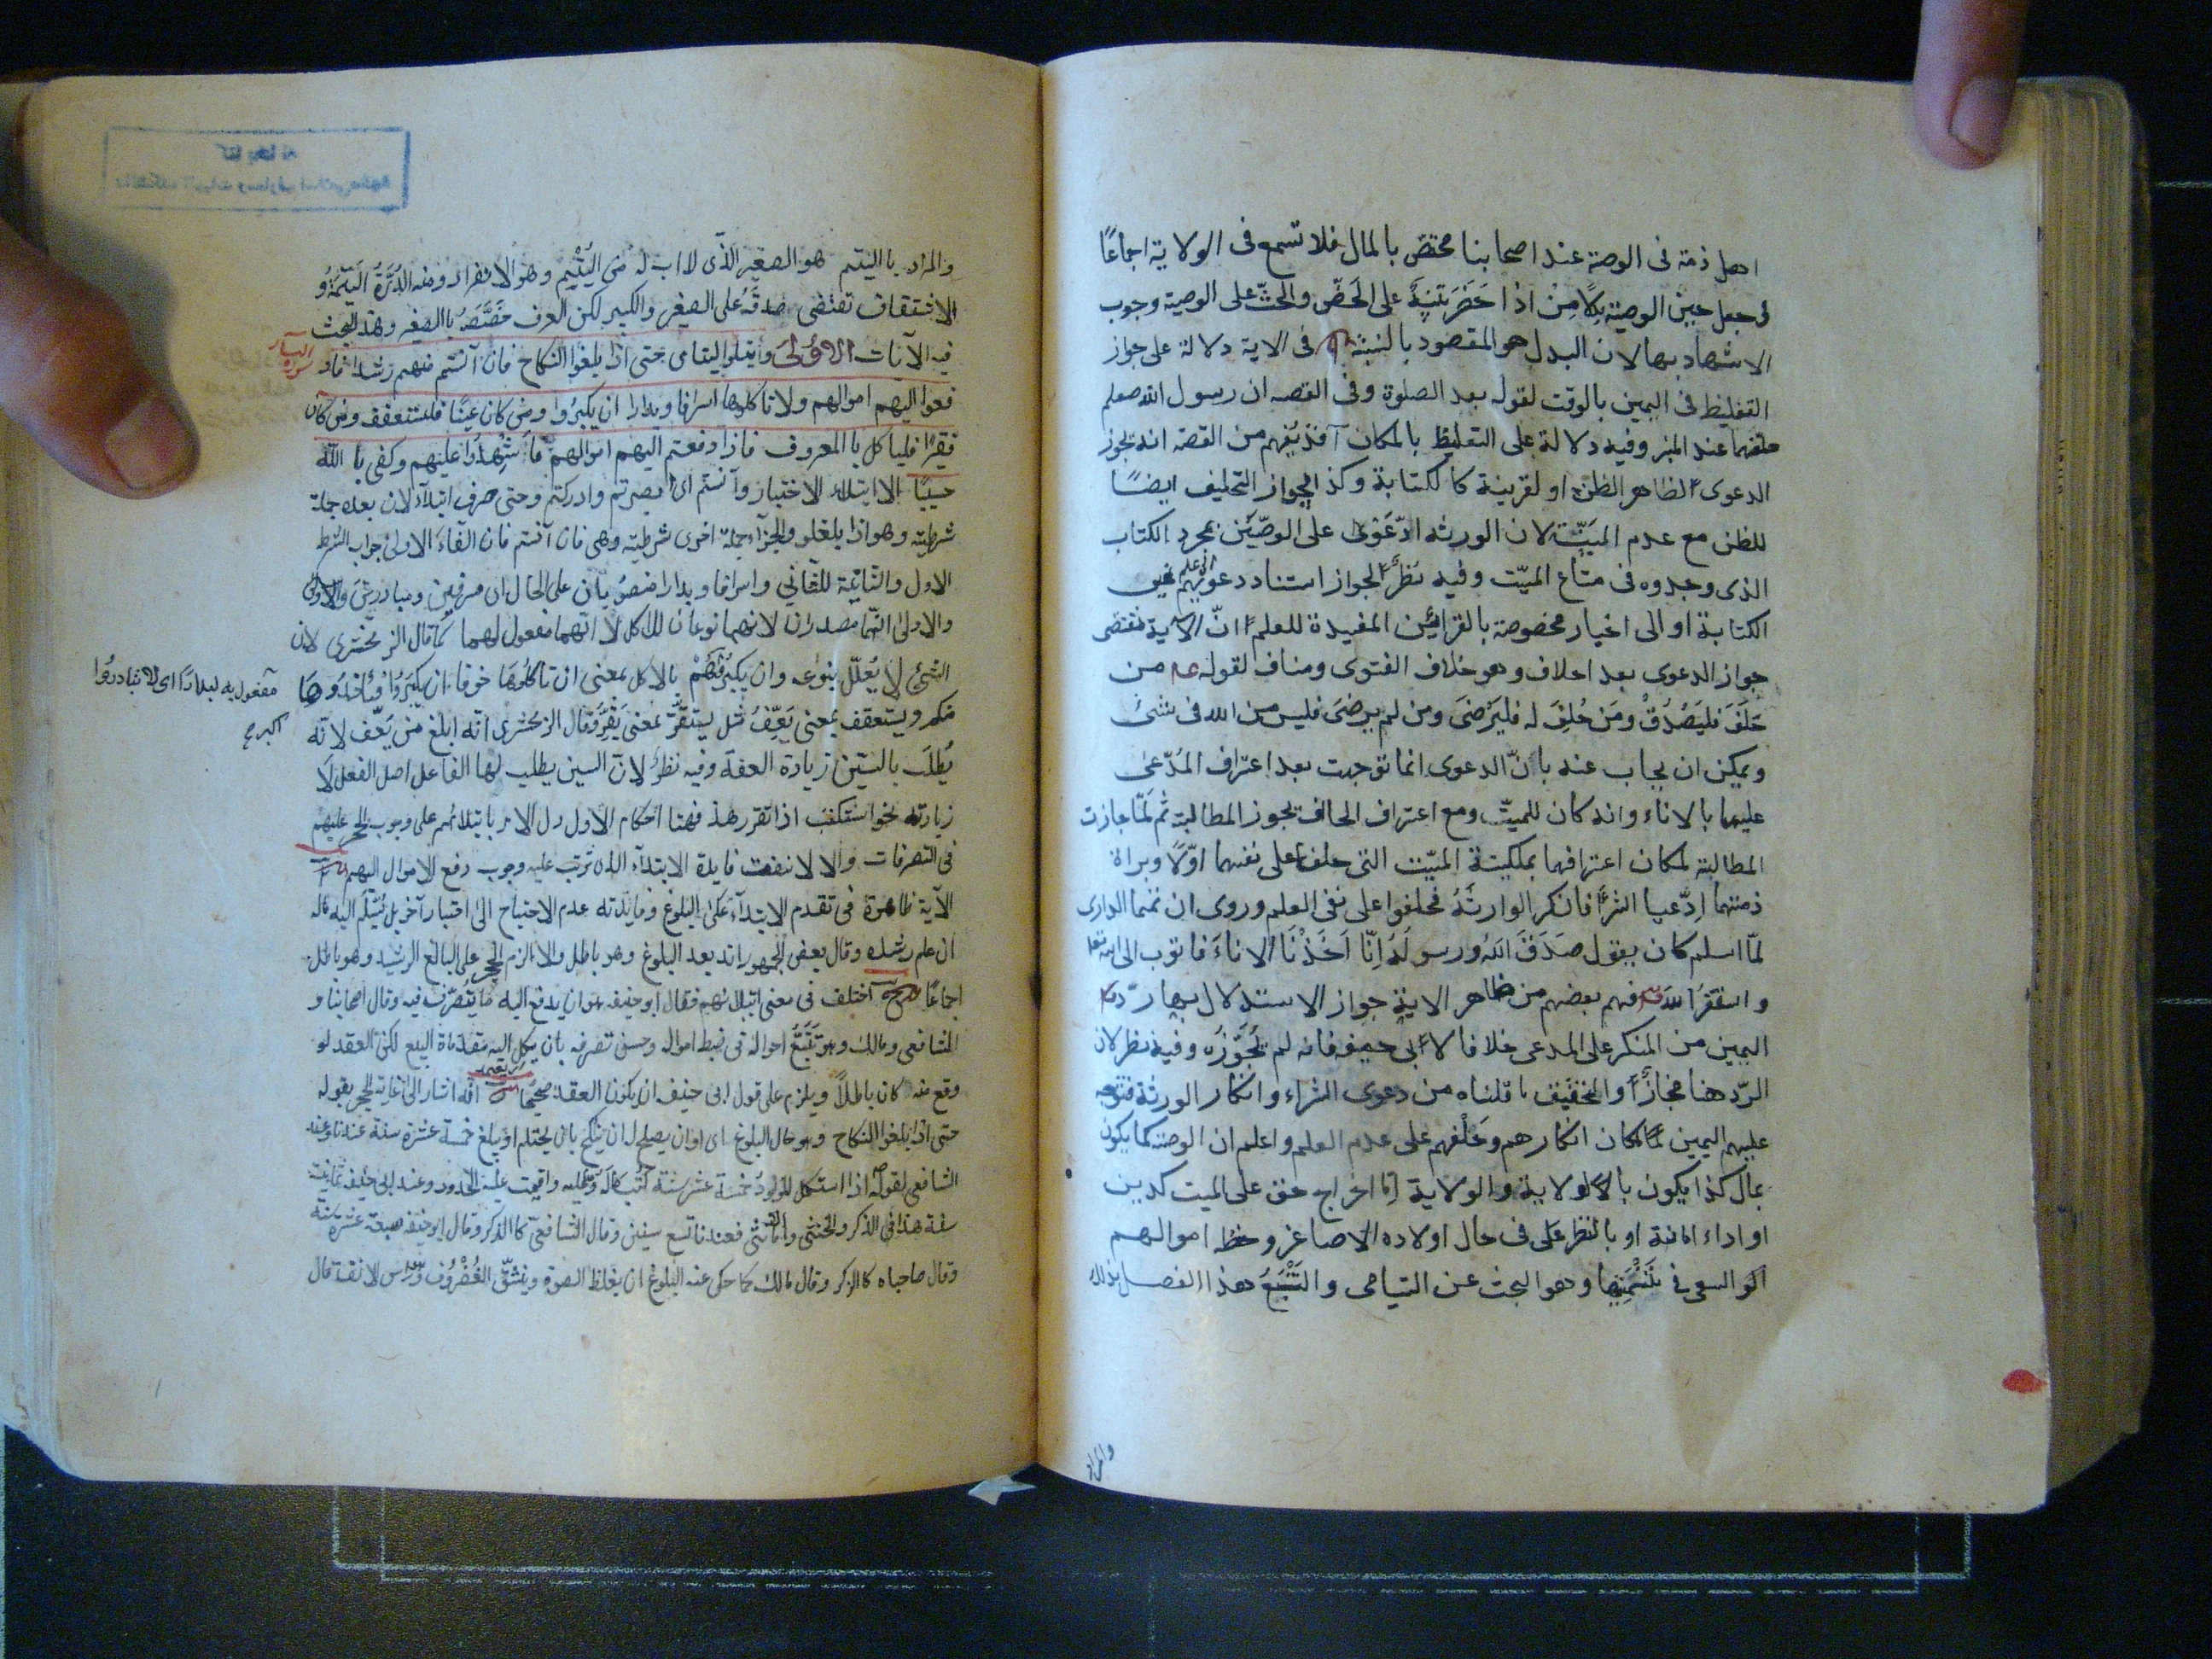 اهل ذمة فى الوصية عند اصحابنا مختص بالمال فلا تسمع فى الولاية اجماعًا
فى جعل حين الوصية بدلًا مِنْ اذا حَضَرَ تنبيه على الحَضّ والحثّ على الوصية وجوب
الاشهاد بها لان البدل هو المقصود بالنسبة فى الاية دلالة على جواز
التغليظ فى اليمين بالوقت لقوله بعد الصلوة وفى القصه ان رسول الله صلعم
حلفهما عند المنبر وفيه دلالة على التغليظ بالمكان يُفهم من القصة انه يجوز
الدعوى الظاهر الظن او لقرينة كالكتابة وكذا يجوز التحليف ايضًا
للظن مع عدم البيّنة لان الورثه ادّعَوْا على الوصّيَيْن بمجرد الكتاب
الذى وجدوه فى متاع الميّت وفيه نظرٌ لجواز استناد دعويهم الى علم غير
الكتابة او الى اخبار مخصوصة بالقرائن المفيدة للعلم انّ الآية تقتضى
جواز الدعوى بعد احلاف وهو خلاف الفتوى ومناف لقوله عم من
حَلَفَ فليَصْدُقْ ومَن حُلِفَ له فليَرْضَ ومن لم يرضَ فليس من الله فى شئ
ويمكن ان يجاب عنه بانّ الدعوى انما توجهت بعد اعتراف المُدّعى
عليهما بالاناء وانه كان للميّت ومع اعتراف الحالف يجوز المطالبة ثم لمّا جازت
المطالبة لمكان اعترافهما بملكيّة الميّت التى حلفا على نفيها اوّلًا وبراة
ذمتهما اِدّعيا الشرآء فانكر الوارثُ فحلفوا على نفى العلم وروى ان تميما الدارى
لمّا اسلم كان يقول صَدَقَ اللهُ ورسولُهُ اِنّا اَخَذْنَا الاناءَ فاتوب الى الله تعالى
واستغفر اللهَ فهم بعضهم من ظاهر الاية جواز الاستدلال بها ردّ
اليمين من المنكر على المدعى خلافا لابى حنيفه فانه لم يُجَوّزْه وفيه نظر لان
الردّ هنا مجازٌ والتحقيق ما قلناه من دعوى الشراء وانكار الورثة فتوجه
عليهم اليمين لمكان انكارهم وحَلْفهم على عدم العلم واعلم ان الوصية كما يكون
بمال كذا يكون بالولاية والولاية اِمّا اخراج حق على الميت كدين
او اداء امانة او بالنظر على فى حال اولاده الاصاغر وحفظ اموالهم
او السعى فى تَنْمِيَتِها وهو البحث عن اليتامى والنَتْبَعُ هذا الفصل بذلك
والمراد
والمراد باليتيم هو الصغير الذى لا اب له من اليُتْمِ وهو الانفراد ومنه الدُرّةُ اليَتيمَةُ و
الاشتقاق تقتضى صدقَهُ على الصغير والكبير لكن العرف خَصَّصَهُ بالصغير وهنا البحث
فيه الآيات الاُولىَ وابتلوا اليتامى حتى اذا بلغوا النكاح فان آنستم منهم رشدا فاد
سورة النساء
فعوا اليهم اموالهم ولا تاكلوها اسرافا وبدارا ان يكبرُوا ومن كان غنيًا فليستعفف ومن كان
فقيرًا فلياكل بالمعروف فاذا دفعتم اليهم اموالهم فَاَشْهِدُوا عليهم وكفى بالله
حسيبًا الابتلاء الاختبار وآنستم اى ابصرتم وادركتم وحتى حرف ابتداء لان بعده جملة
شرطية وهو اذا بلغوا والجزاء جملة اخرى شرطية وهى فان آنستم فان الفاءَ الاولى جواب الشرط
الاول والثانية للثاني واسرافا وبدارا منصوبان على الحال اى مسرفين ومبادرين والاولى
والاولى انهما مصدران لانهما نوعان للاكل لا انهما مفعول لهما كما قال الزمخشرى لان
الشئ لا يُعَلَّل بنوعه وان يكبروا بالاكل بمعنى ان تاكلوها خوفا ان يكبَرُوا فياخذوها
مفعول به لبدارًا اى لا تبادروا
كبرهم
منكم ويستعفف بمعنى يَعِفُّ مثل يستقرّ بمعنى يَقِرُّ وقال الزمخشرى انه ابلغ من يَعِفّ لانه
يَطلُب بالسّين زيادة العفة وفيه نظرٌ لان السين يطلب بها الفاعل اصل الفعل لا
زيادته نحو استكتب اذا تقرر هذا فهنا احكام الاول دل الامر بابتلائهم على وجوب الحجر عليهم
فى التصرفات والا لانتفت فايدة الابتلاء الذى ترتب عليه وجوب دفع الاموال اليهم
الآية ظاهرة فى تقدم الابتلاء على البلوغ وفائدته عدم الاحتياج الى اختبار آخر بل يُسَلَّم اليه ماله
ان علم رشده وقال بعض الجمهور انه بعد البلوغ وهو باطل والا لزم الحجر على البالغ الرشيد وهو باطل
اجماعًا اختلف فى معنى ابتلائهم فقال ابو حنيفه هو ان يدفع اليه ما يتصرّف فيه وقال اصحابنا و
الشافعى ومالك وهو تَتَبُّعُ احواله فى ضبط امواله وحسن تصرفه بان يكل اليه مقدمات البيع لكن العقد لو
وقع منه كان باطلًا ويلزم على قول ابى حنيفه ان يكون العقد صحيحًا انه اشار الى غاية الحجر بقوله
حتى اذا بلغوا النكاح وهو حال البلوغ اى اوان يصلح له ان ينكح بان يحتلم او يبلغ خمسة عشرة سنة عندنا وعند
الشافعى لقوله اذا استكمل المولودُ خمسة عشر سنة كُتب ماله وعليه واقيمت عليه الحدود وعند ابى حنيفه ثمانية
سنة هذا فى الذكر والخنثى واما الانثى فعندنا تسع سنين وقال الشافعىّ كالذكر وقال ابو حنيفه سبعة عشرة سنة
وقال صاحباه كالذكر وقال مالك كما حكى عنه البلوغ ان يغلظ الصوت وينشقّ الغُضْرُوف وهو راس الانف قال